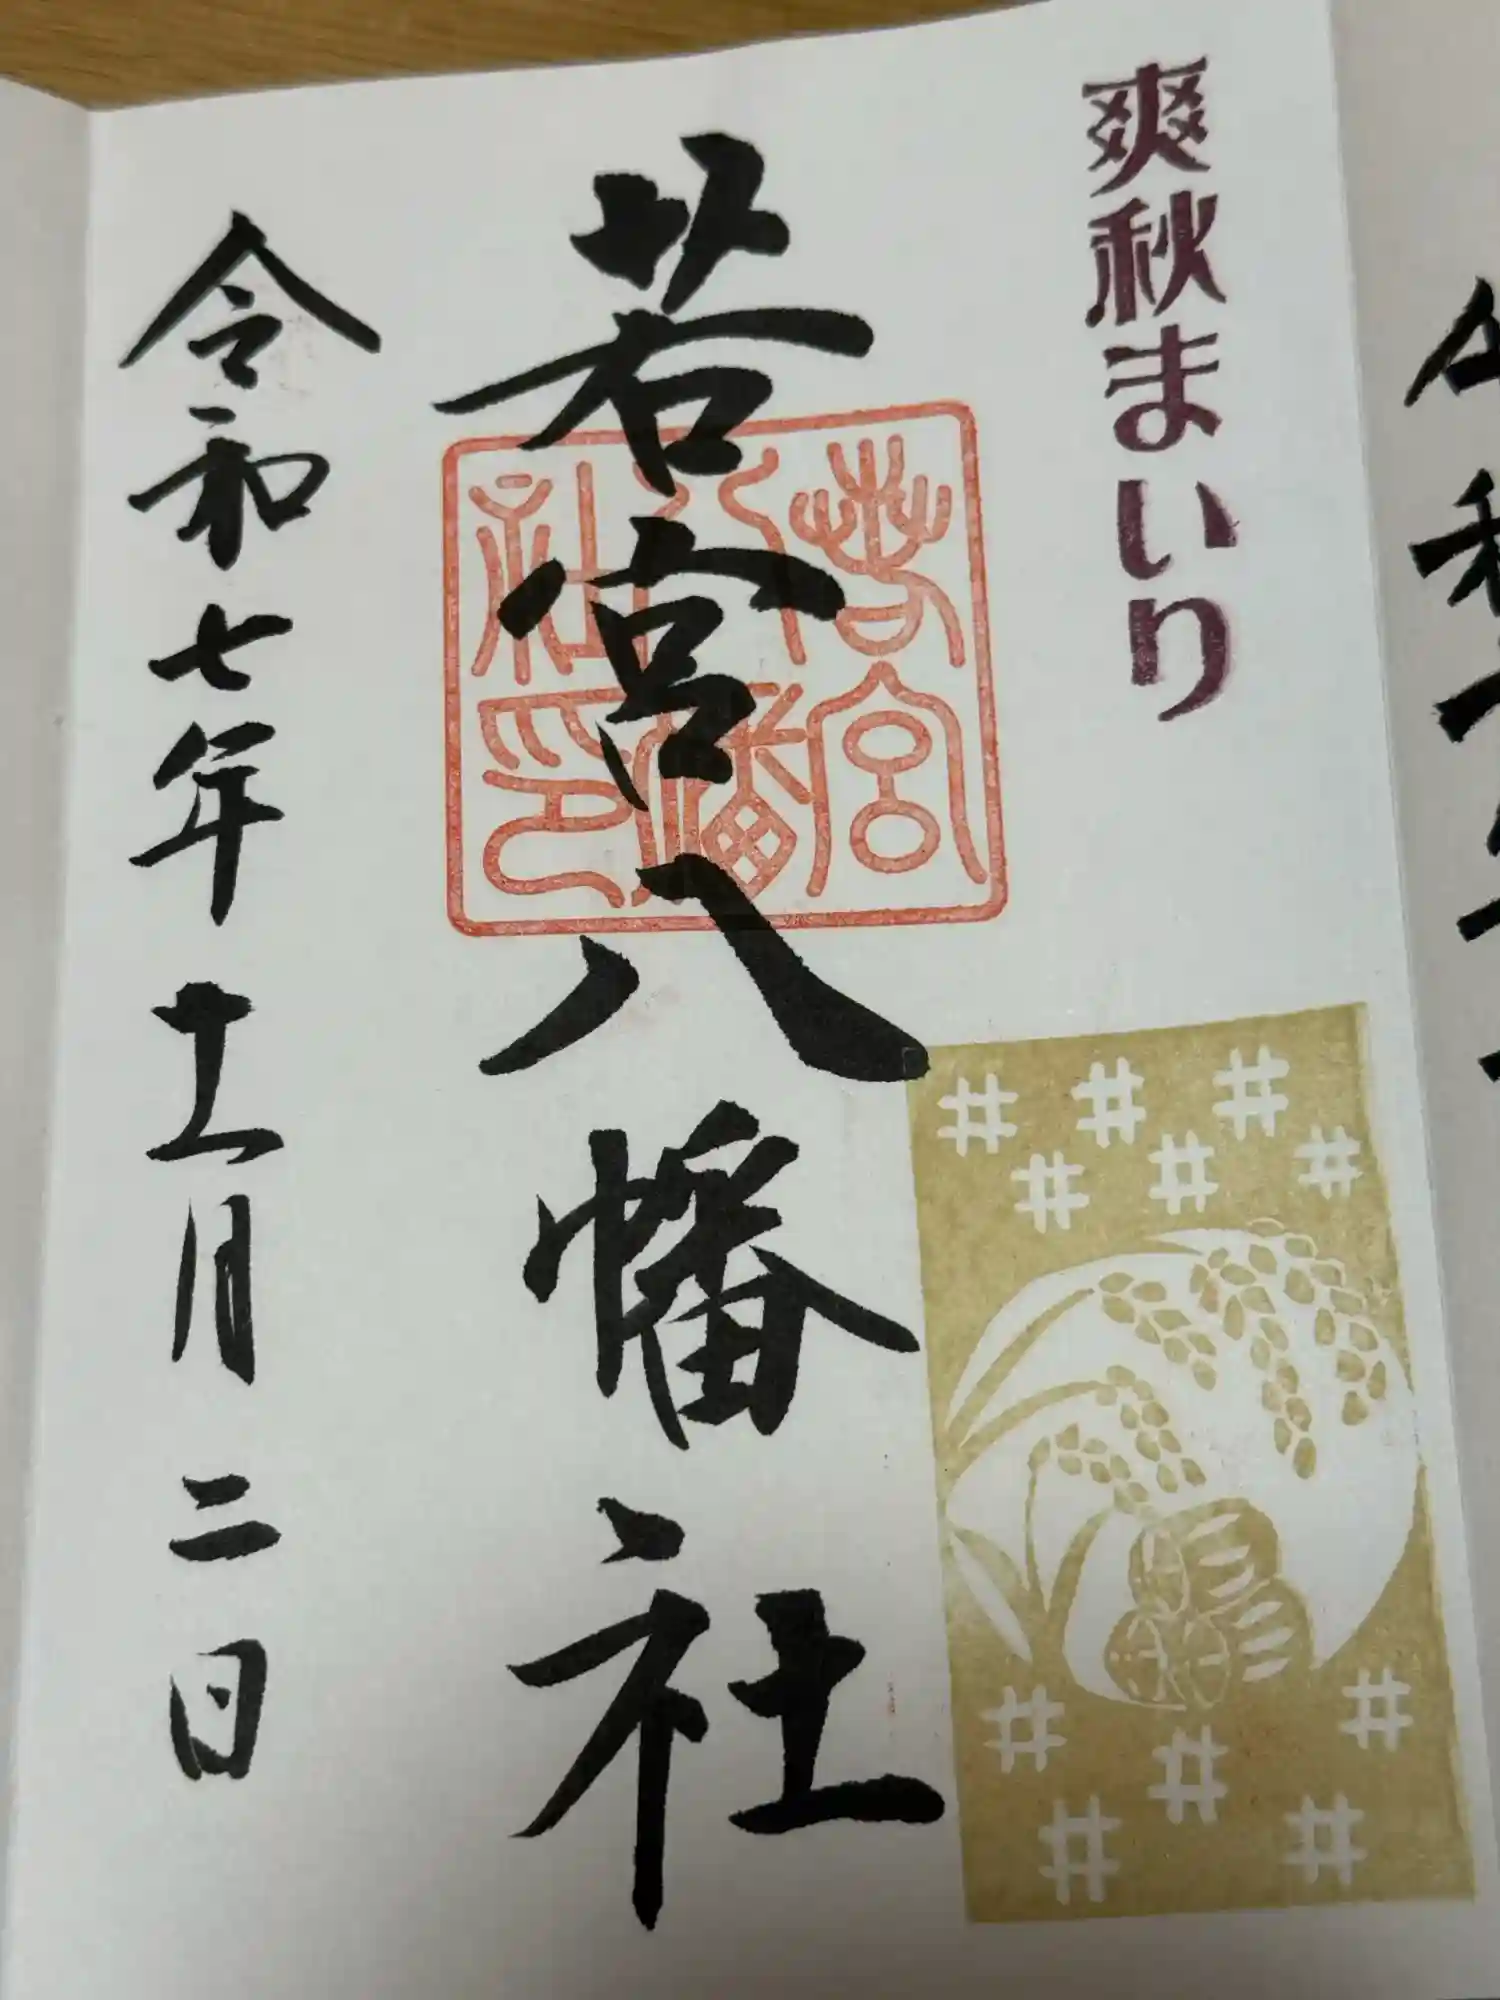 爽秋まいり
若宮八幡社
若宮
八幡
社印
令和七年十一月二日